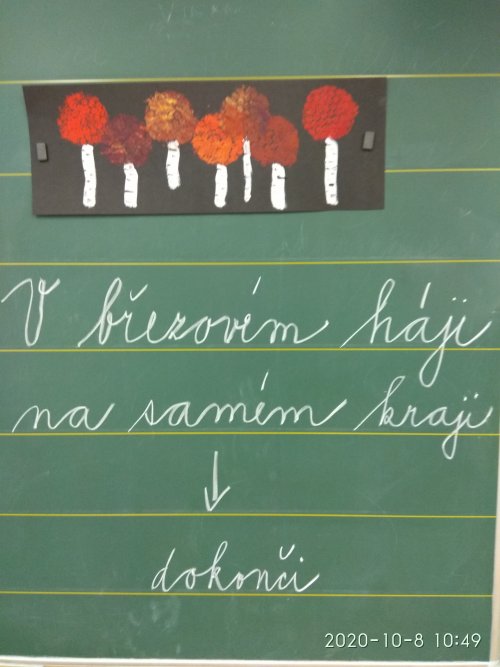 V březovém háji
na samém kraji
↓
dokonči
2020-10-8 10:49